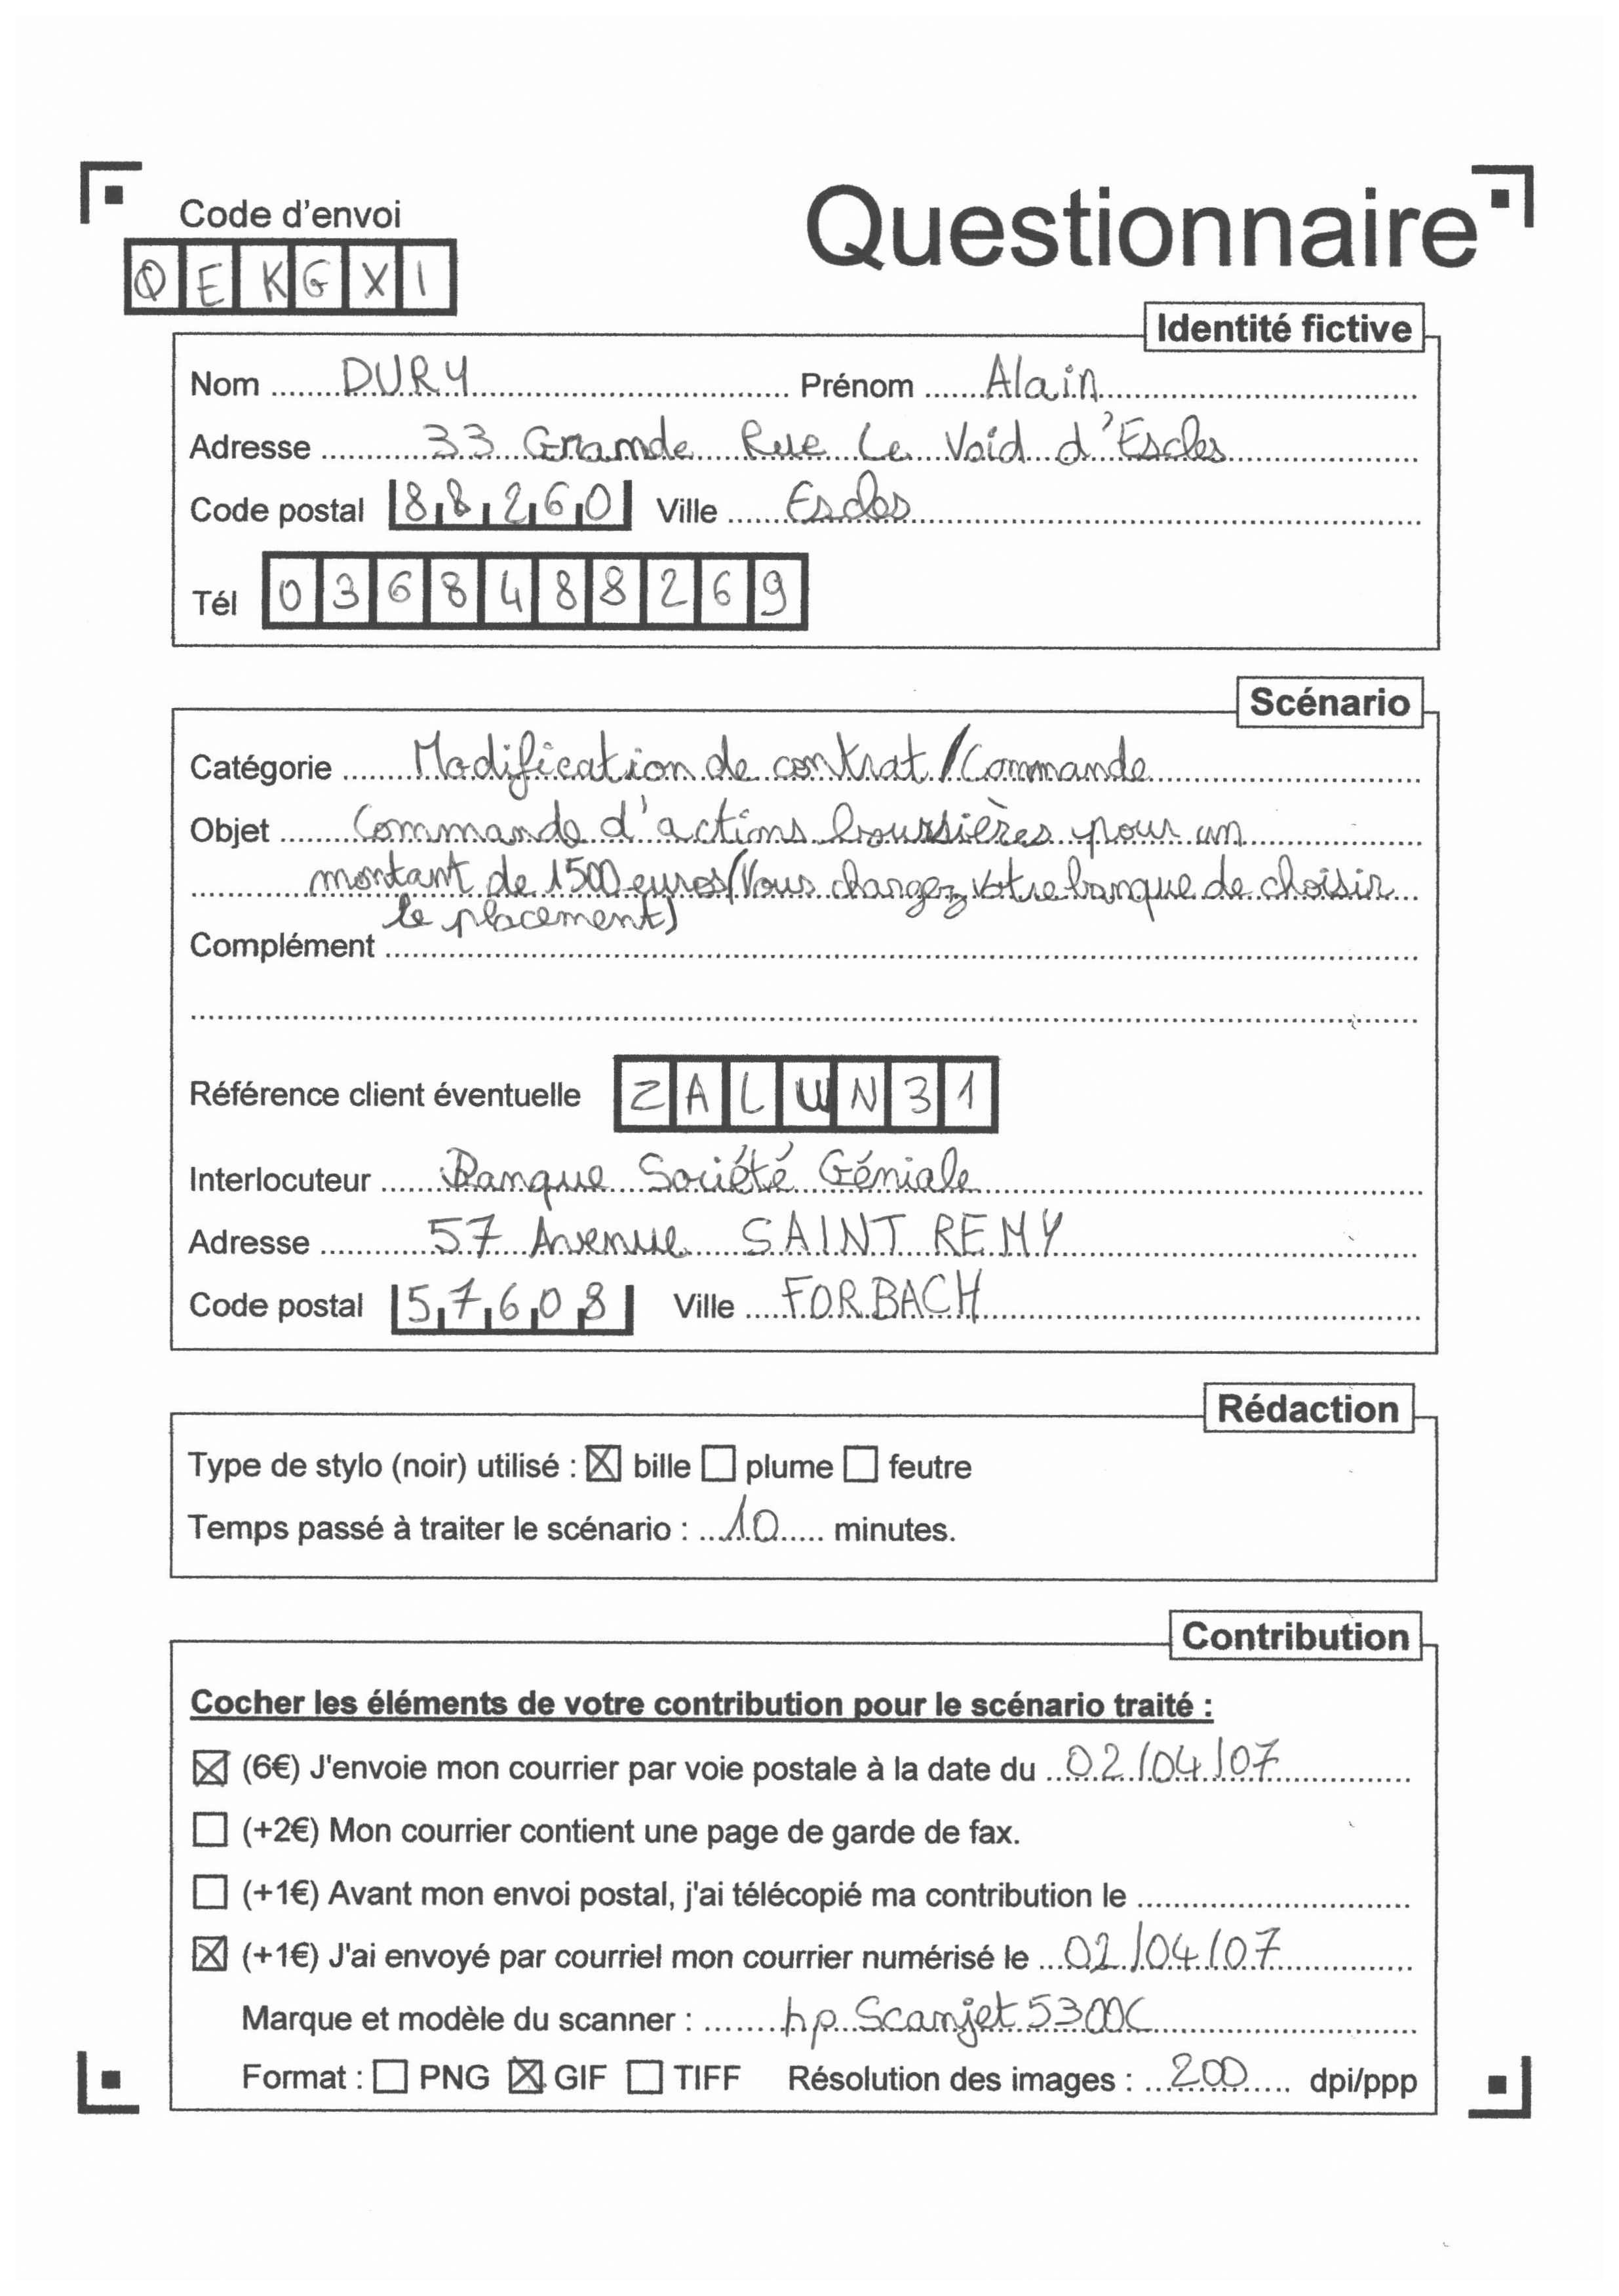 Code d'envoi
Questionnaire
QEKGXI
Identité fictive
Nom DURY Prénom Alain
Adresse 33 Grande Rue Le Void d'Escles
Code postal 88260 Ville Escles
Tél 0368488269
Scénario
Catégorie Modification de contrat / Commande
Objet Commande d'actions boursières pour un
montant de 1500 euros (Vous chargez votre banque de choisir
le placement)
Complément
Référence client éventuelle ZALWN31
Interlocuteur Banque Société Géniale
Adresse 57 Avenue SAINT REMY
Code postal 57608 Ville FORBACH
Rédaction
Type de stylo (noir) utilisé : ☒ bille ☐ plume ☐ feutre
Temps passé à traiter le scénario : 10 minutes.
Contribution
Cocher les éléments de votre contribution pour le scénario traité :
☒ (6€) J'envoie mon courrier par voie postale à la date du 02/04/07
☐ (+2€) Mon courrier contient une page de garde de fax.
☐ (+1€) Avant mon envoi postal, j'ai télécopié ma contribution le
☒ (+1€) J'ai envoyé par courriel mon courrier numérisé le 02/04/07
Marque et modèle du scanner : hp Scanjet 5300C
Format : ☐ PNG ☒ GIF ☐ TIFF Résolution des images : 200 dpi/ppp